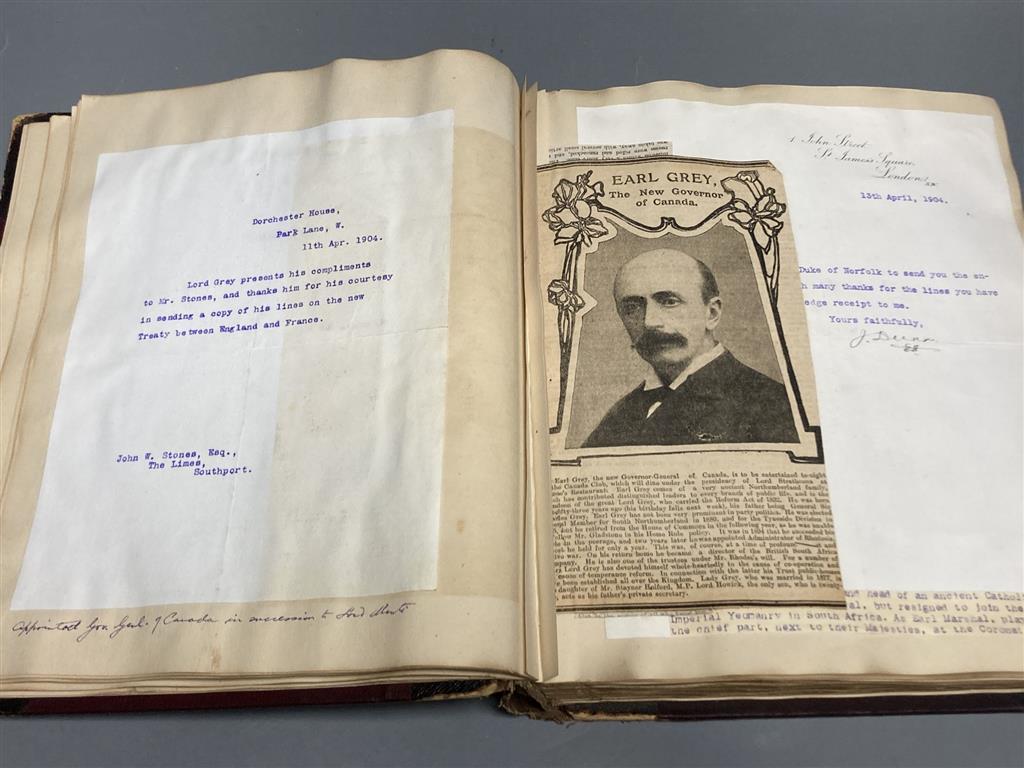 Dorchester House,
Park Lane, W.
11th Apr. 1904.
Lord Grey presents his compliments
to Mr. Stones, and thanks him for his courtesy
in sending a copy of his lines on the new
Treaty between England and France.
John W. Stones, Esq.,
The Limes,
Southport.
Appointed Gov. Genl. of Canada in succession to Lord Minto
EARL GREY,
The New Governor
of Canada.
Earl Grey, the new Governor-General of Canada, is to be entertained to-night
the Canada Club, which will dine under the presidency of Lord Strathcona at
Restaurant. Earl Grey comes of a very ancient Northumberland family,
has contributed distinguished leaders to every branch of public life, and is the
of the great Lord Grey, who carried the Reform Act of 1832. He was born
fifty-three years ago (his birthday falls next week), his father being General Sir
Grey. Earl Grey has not been very prominent in party politics. He was elected
Member for South Northumberland in 1880, and for the Tyneside Division in
but he retired from the House of Commons in the following year, as he was unable
Mr. Gladstone in his Home Rule policy. It was in 1894 that he succeeded his
in the peerage, and two years later he was appointed Administrator of Rhodesia
he held for only a year. This was, of course, at a time of profound
war. On his return home he became a director of the British South Africa
He is also one of the trustees under Mr. Rhodes's will. For a number of
Lord Grey has devoted himself whole-heartedly to the cause of co-operation and
cause of temperance reform. In connection with the latter his Trust public-houses
been established all over the Kingdom. Lady Grey, who was married in 1877, is
daughter of Mr. Stayner Holford, M.P. Lord Howick, the only son, who is twenty-
acts as his father's private secretary.
1 John Street
St James's Square,
London, SW.
13th April, 1904.
Duke of Norfolk to send you the en-
h many thanks for the lines you have
edge receipt to me.
Yours faithfully,
and head of an ancient Catholic
al, but resigned to join the
Imperial Yeomanry in South Africa. As Earl Marshal, play
the chief part, next to their Majesties, at the Coronat